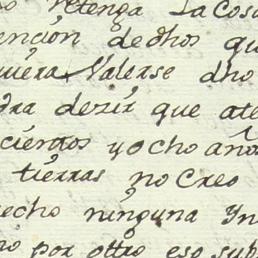 o retenga La Cosa
ención de dhos qu
uiera Valerse dho
dra dezir que ate
cientos y ocho años
tierras no Creo
recho ninguna Yn
ro por ottro eso sub